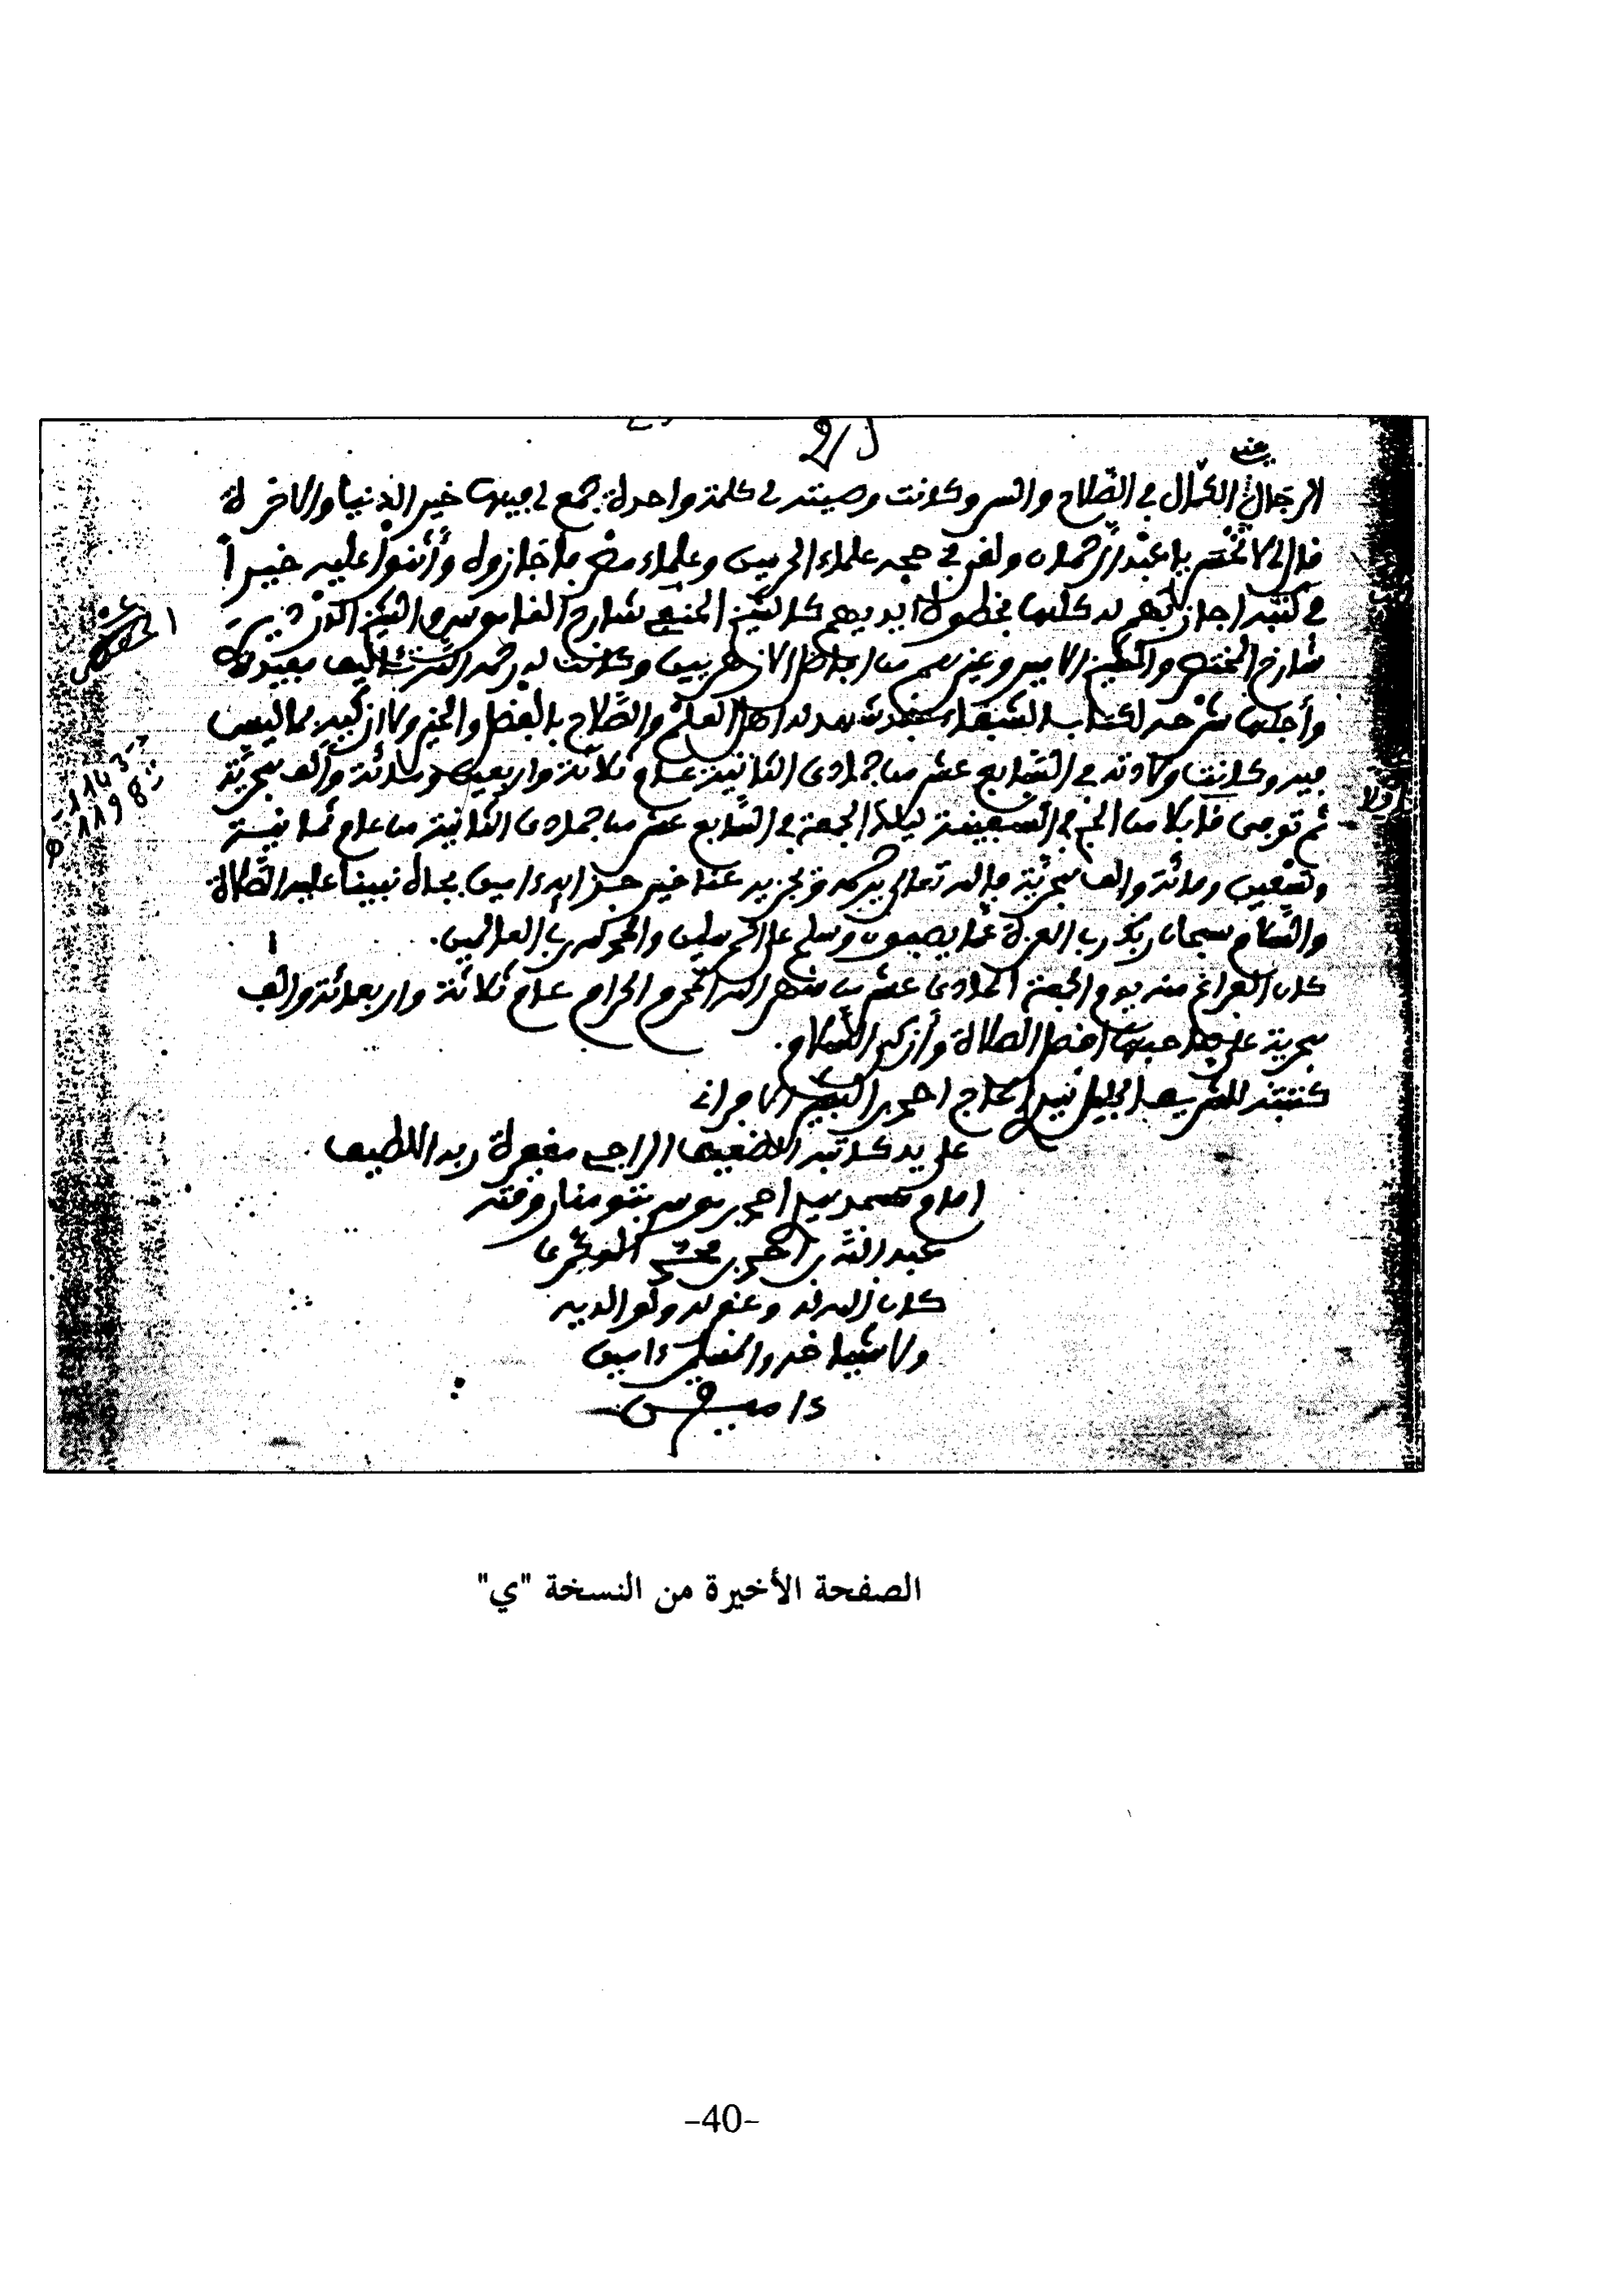 الرجال الكمال في الصلاح والسر وكانت وصيته لي كلمة واحدة جمع لي فيها خير الدنيا والآخرة
قال لي لا تختصر يا عبد الرحمان ولقي في حجه علماء الحرمين وعلماء مصر فأجازوه وأثنوا عليه خيراً
في كتبه اجازتهم له كلها بخطوط أيديهم كالشيخ شارح القاموس والشيخ الدردير
شارح المختصر والشيخ الأمير وغيرهم من أفاضل الأزهريين وكانت له رحمه الله تآليف مفيدة
وأجلها شرحه لكتاب الشفاء شهد له أهل العلم والصلاح بالفضل والخير ولا أزكيه بما ليس
فيه وكانت ولادته في السابع عشر من جمادى الثانية عام ثلاثة واربعين ومائة وألف هجرية
ثم توفي قافلا من الحج في السفينة ليلة الجمعة في السابع عشر من جمادى الثانية من عام ثمانية
وتسعين ومائة والف هجرية فالله تعالى يرحمه ويجزيه عنا خير جزائه ءامين بجاه نبينا عليه الصلاة
والسلام سبحان ربك رب العزة عما يصفون وسلم على المرسلين والحمد لله رب العالمين.
كان الفراغ منه يوم الجمعة الحادى عشر من شهر الله المحرم الحرام عام ثلاثة واربعمائة والف
هجرية على صاحبها افضل الصلاة وأزكى السلام.
كتبته للشريف الجليل سيدي الحاج احمد بن
على يد كاتبه الضعيف الراجي مغفرة ربه اللطيف
امام مسجد سيدي احمد بن موسى وقته
عبد الله بن احمد بن محمد
كان الله له وغفر له ولوالديه
ولأشياخه والمسلمين ءامين
ءامين
1143
1198
الصفحة الأخيرة من النسخة "ي"
-40-